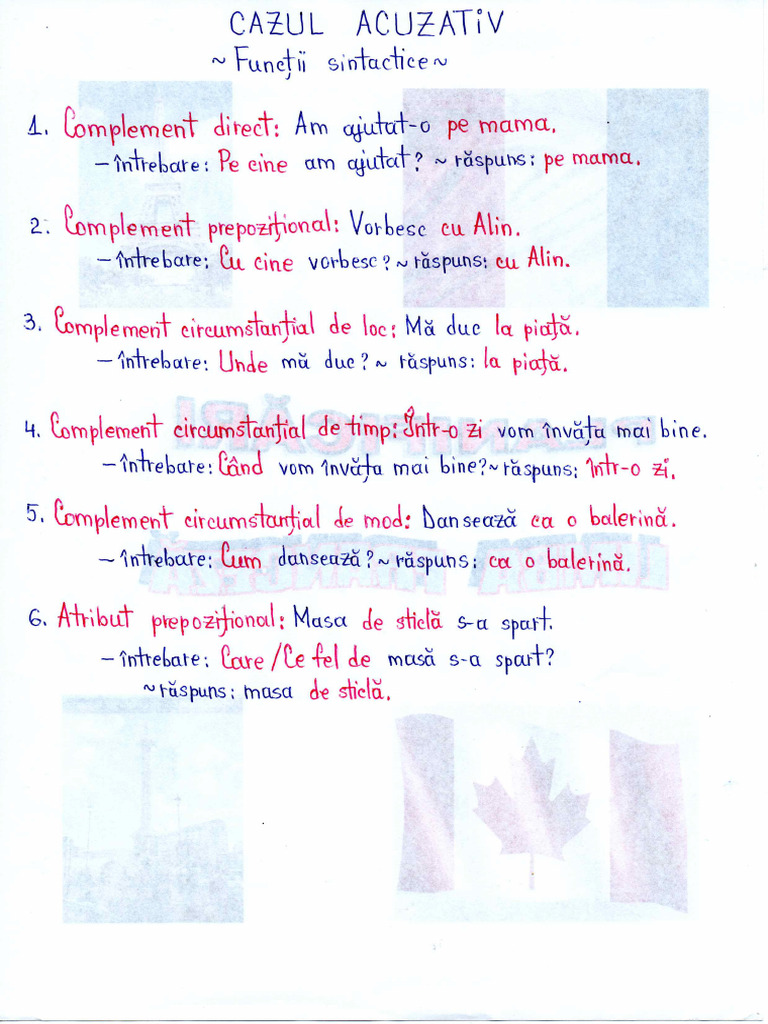 CAZUL ACUZATIV
~ Funcții sintactice ~
1. Complement direct: Am ajutat-o pe mama.
– întrebare: Pe cine am ajutat? ~ răspuns: pe mama.
2. Complement prepozițional: Vorbesc cu Alin.
– întrebare: Cu cine vorbesc? ~ răspuns: cu Alin.
3. Complement circumstanțial de loc: Mă duc la piață.
– întrebare: Unde mă duc? ~ răspuns: la piață.
4. Complement circumstanțial de timp: Într-o zi vom învăța mai bine.
– întrebare: Când vom învăța mai bine? ~ răspuns: într-o zi.
5. Complement circumstanțial de mod: Dansează ca o balerină.
– întrebare: Cum dansează? ~ răspuns: ca o balerină.
6. Atribut prepozițional: Masa de sticlă s-a spart.
– întrebare: Care / Ce fel de masă s-a spart?
~ răspuns: masa de sticlă.
PLANIFICĂRI
LIMBA FRANCEZĂ